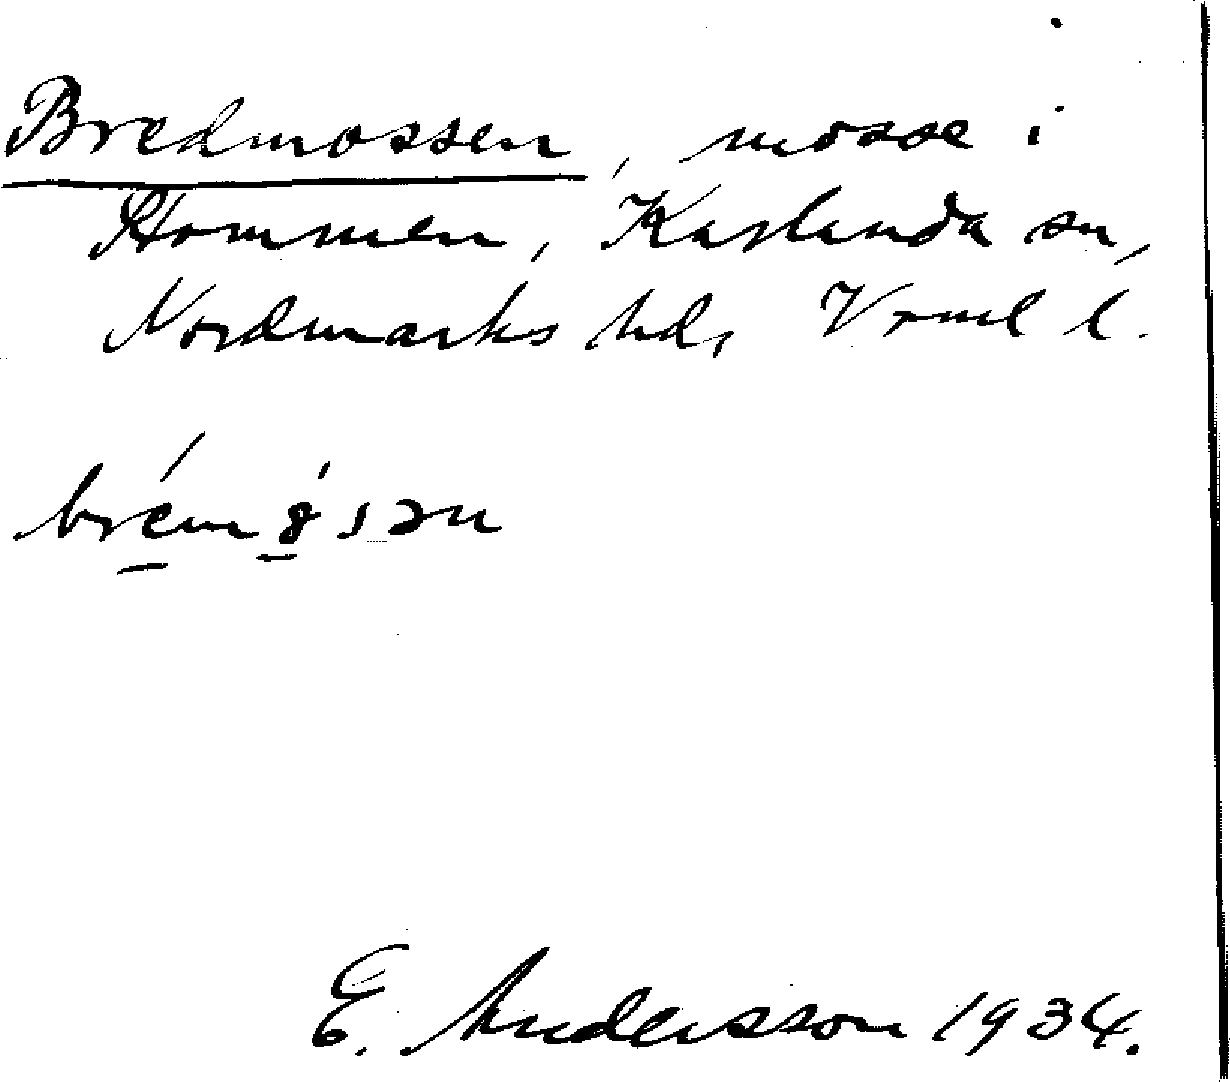 Bredmossen, mosse i
Stommen, Karlanda sn,
Nordmarks hd, Vrml l.
brémo̱̍sən
E. Andersson 1934.